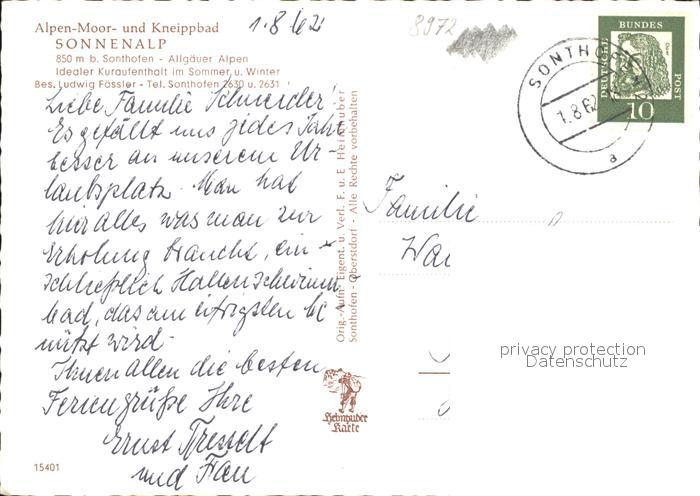 Alpen-Moor- und Kneippbad
SONNENALP
850 m b. Sonthofen - Allgäuer Alpen
Idealer Kuraufenthalt im Sommer u. Winter
Bes. Ludwig Fässler - Tel. Sonthofen 2630 u. 2631
1.8.62
Liebe Familie
Es gefällt uns jedes Jahr
besser an unserem Ur-
laubsplatz. Man hat
hier alles was man zur
Erholung braucht, ein-
schließlich Hallenschwimm-
bad, das am eifrigsten be
nützt wird.
Ihnen allen die besten
Feriengrüße Ihre
Ernst
und Frau
15401
Orig.-Aufn. Eigent. u. Verl. F. u. E Heimhuber
Sonthofen - Oberstdorf - Alle Rechte vorbehalten
Heimhuber
Karte
8972
SONTHOFEN
1.8.62
a
DEUTSCHE
BUNDES
POST
Dürer
10
Familie
privacy protection
Datenschutz